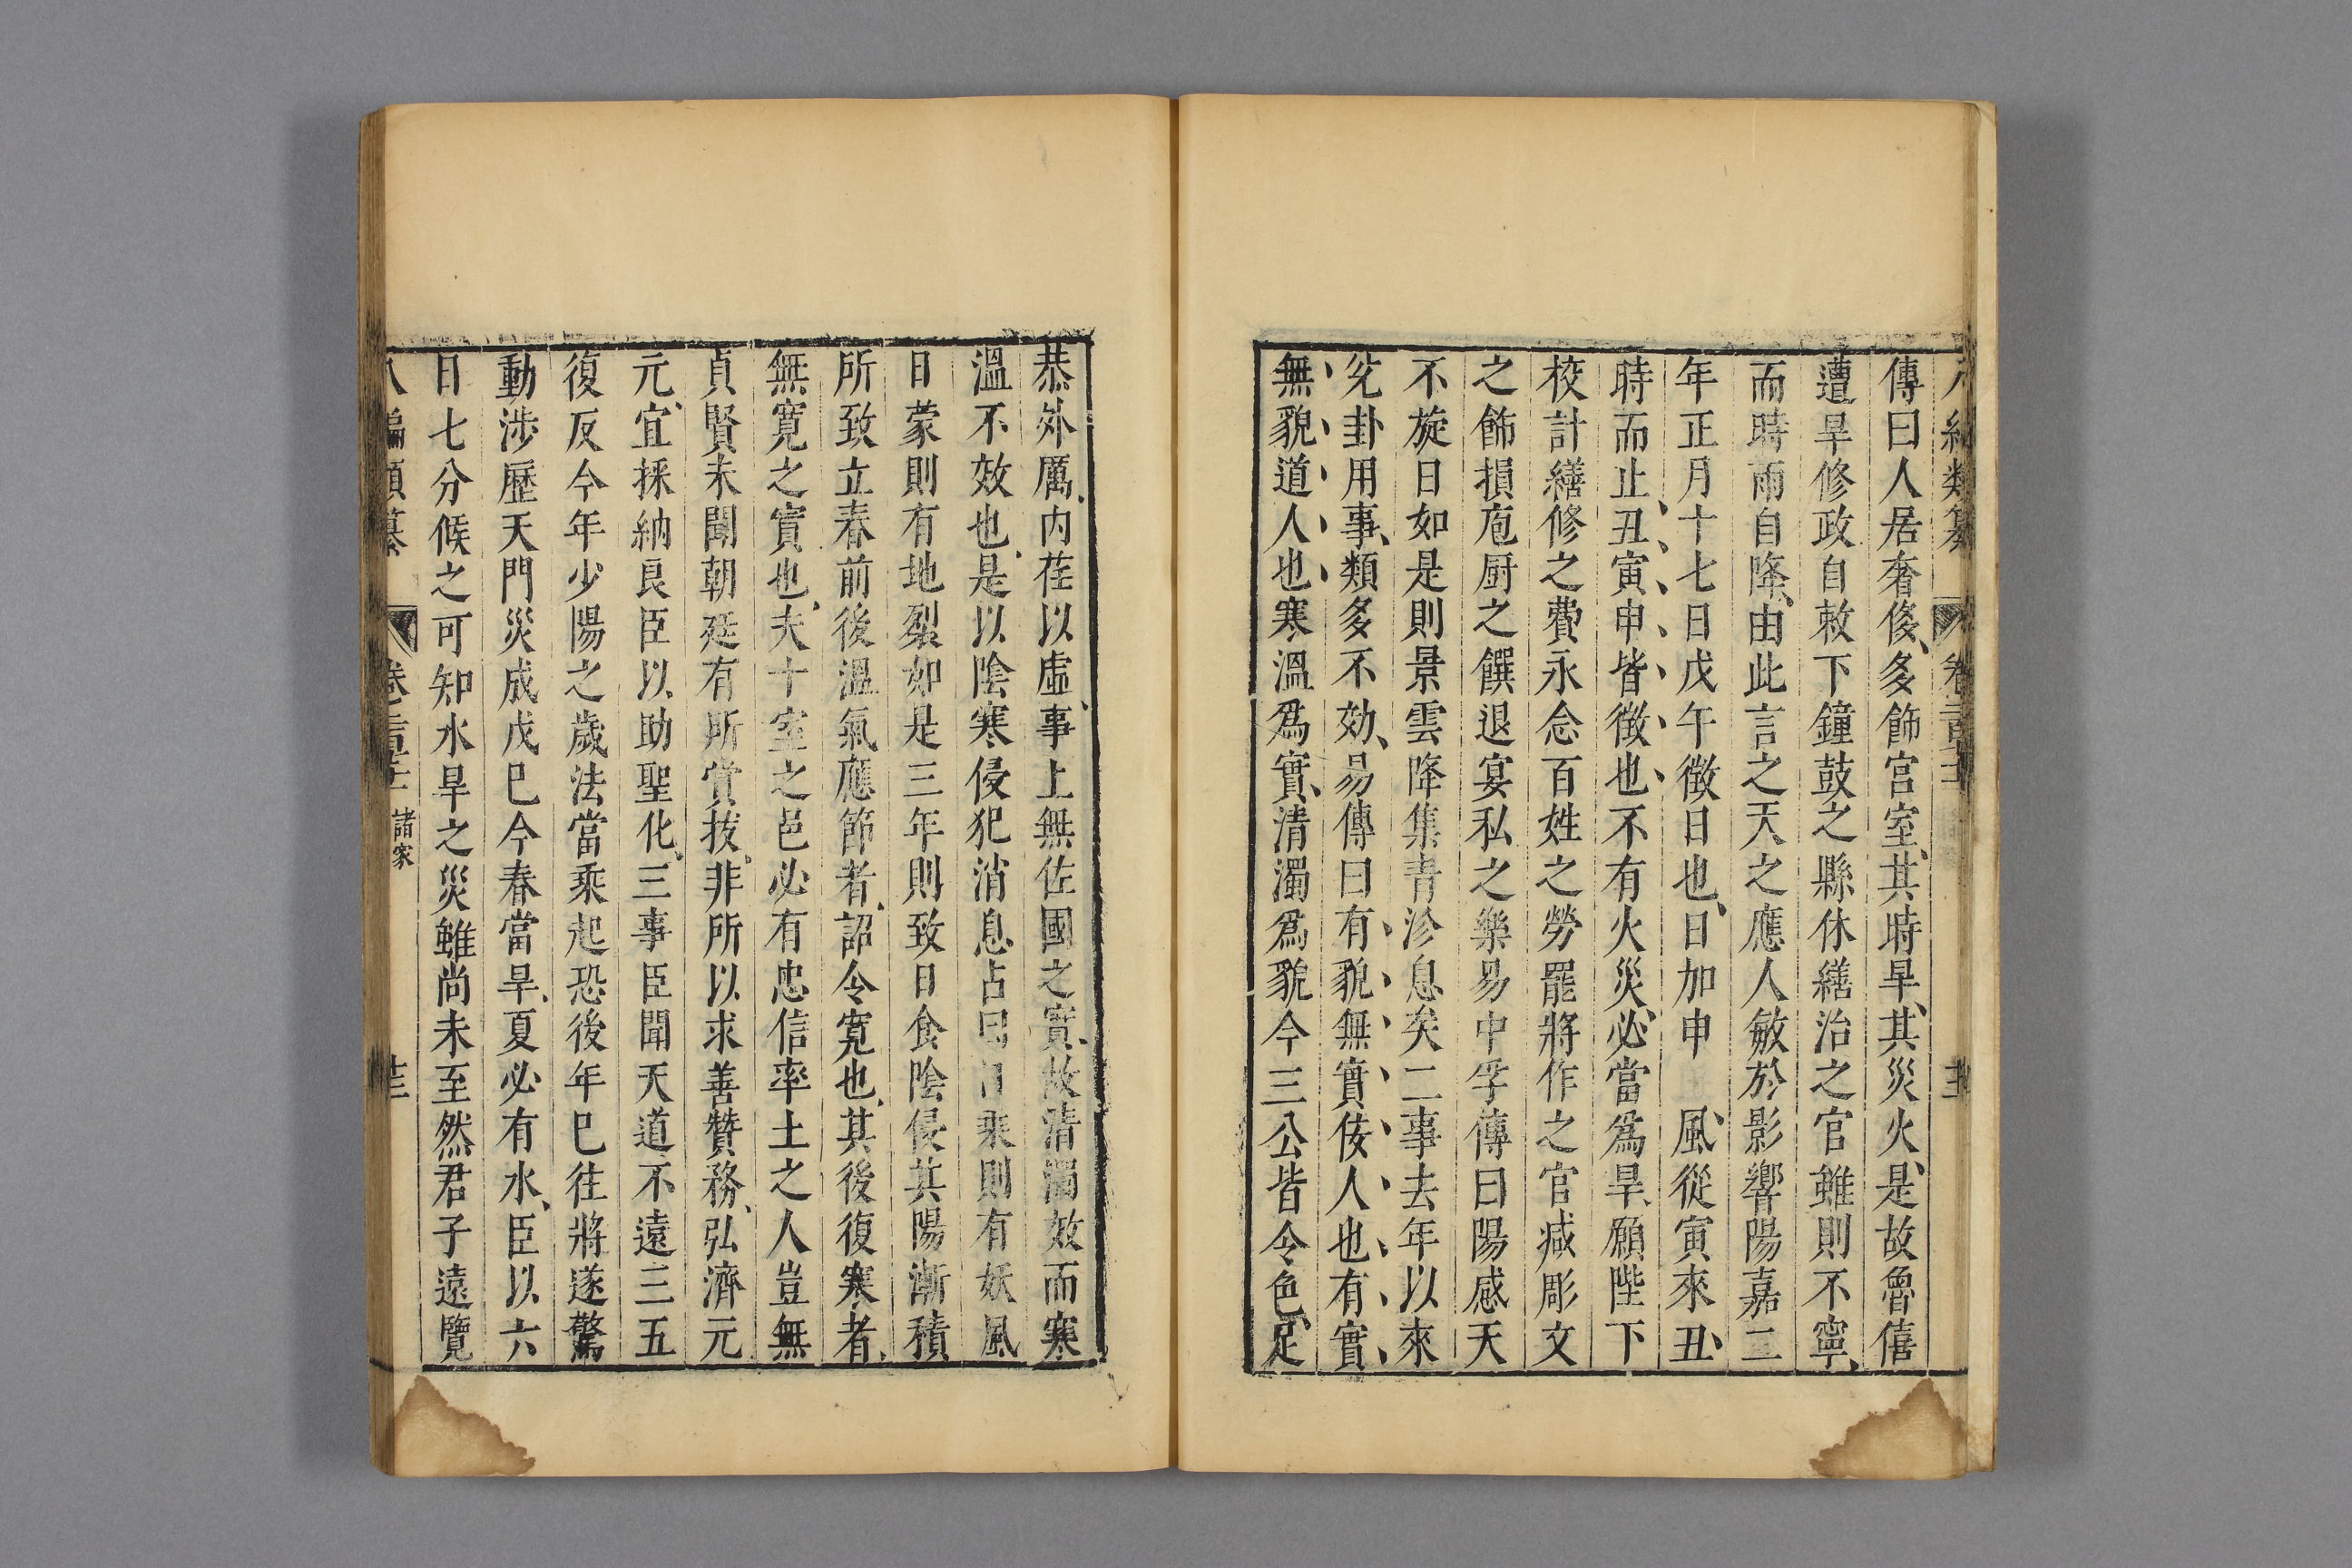 傳曰人居奢侈多飾宮室其時旱其災火是故魯僖
遭旱修政自敕下鐘鼓之縣休繕治之官雖則不寧
而時雨自降由此言之天之應人敏於影響陽嘉二
年正月十七日戊午徵日也日加申 風從寅來丑
時而止丑寅申皆徵也不有火災必當爲旱願陛下
校計繕修之費永念百姓之勞罷將作之官減彫文
之飾損庖厨之饌退宴私之樂易中孚傳曰陽感天
不旋日如是則景雲降集眚沴息矣二事去年以來
兊卦用事類多不効易傳曰有貌無實佞人也有實
無貌道人也寒溫爲實清濁爲貌今三公皆令色足
恭外厲內荏以虛事上無佐國之實故清濁效而寒
溫不效也是以陰寒侵犯消息占曰日乘則有妖風
日蒙則有地裂如是三年則致日食陰侵其陽漸積
所致立春前後溫氣應節者詔令寬也其後復寒者
無寬之實也夫十室之邑必有忠信率土之人豈無
貞賢未聞朝廷有所賞拔非所以求善贊務弘濟元
元宜採納良臣以助聖化三事臣聞天道不遠三五
復反今年少陽之歲法當乘起恐後年已往將遂驚
動涉歷天門災成戊巳今春當旱夏必有水臣以六
日七分候之可知水旱之災雖尚未至然君子遠覽
八編類纂 諸家